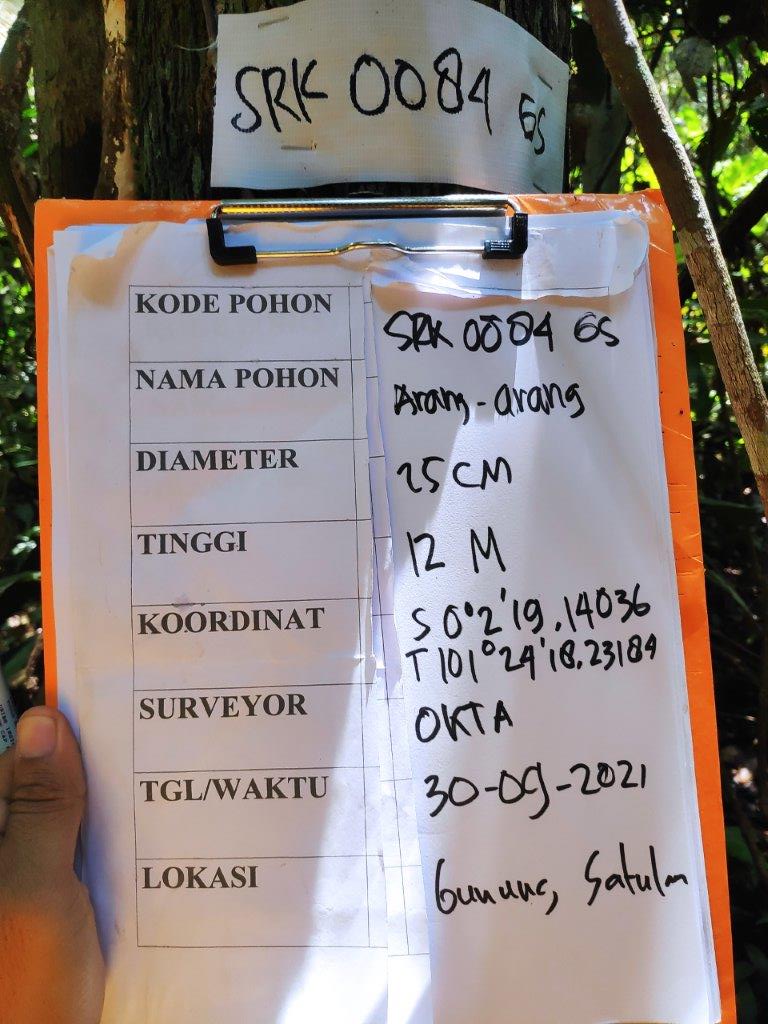 SRK 0084 GS
KODE POHON SRK 0084 GS
NAMA POHON Arang-arang
DIAMETER 25 CM
TINGGI 12 M
KOORDINAT S 0°2'19.14036
T 101°24'18.23184
SURVEYOR OKTA
TGL/WAKTU 30-09-2021
LOKASI Gunung Satulan